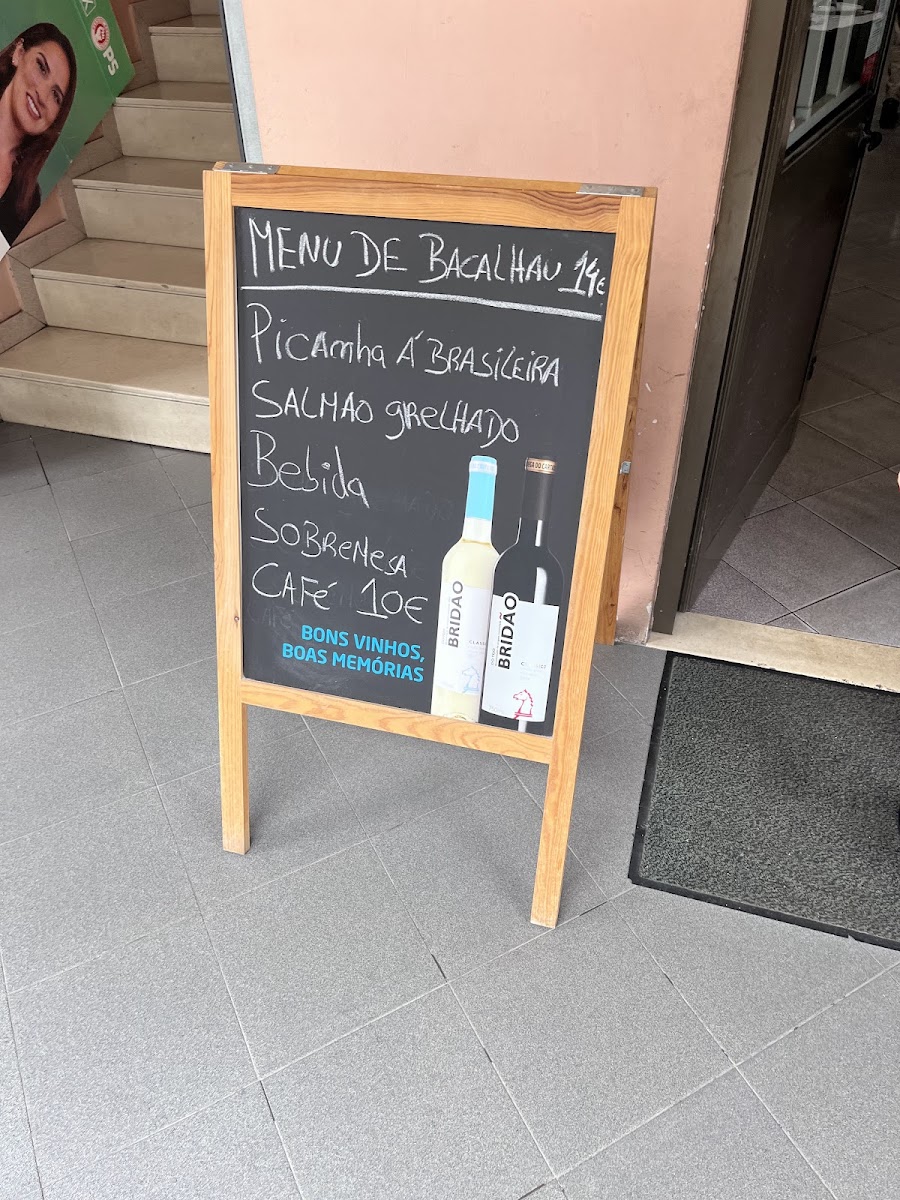 PS
MENU DE BACALHAU 14€
Picanha Á BRASiLEiRA
SALMAO gRELHADO
Bebida
SOBREMESA
CAFé 10€
BONS VINHOS,
BOAS MEMÓRIAS
BRIDÃO
BRIDÃO